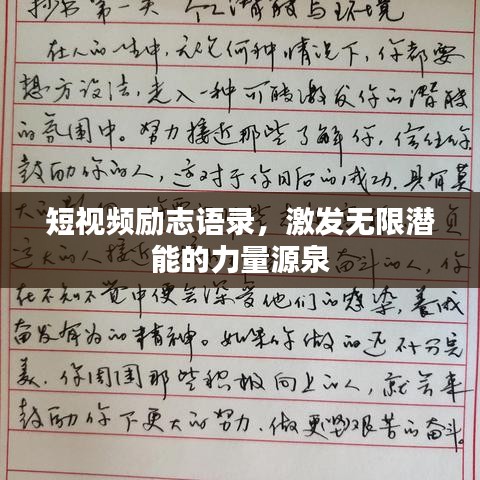 抄书第一天 个人潜能与环境
在人的一生中，无论何种情况下，你都要
想方设法，走入一种可能激发你的潜能
的氛围中。努力接近那些了解你，信任你
鼓励你的人，这对于你日后的成功，具有莫
大的
短视频励志语录，激发无限潜
能的力量源泉
大的人接近
奋斗的人，你
在不知不觉中便会深受他们的感染，养成
奋发有为的精神。如果你做的还不十分完
美，你周围那些积极向上的人，就会来
鼓励你下更大的努力，做更坚艰苦的奋斗。